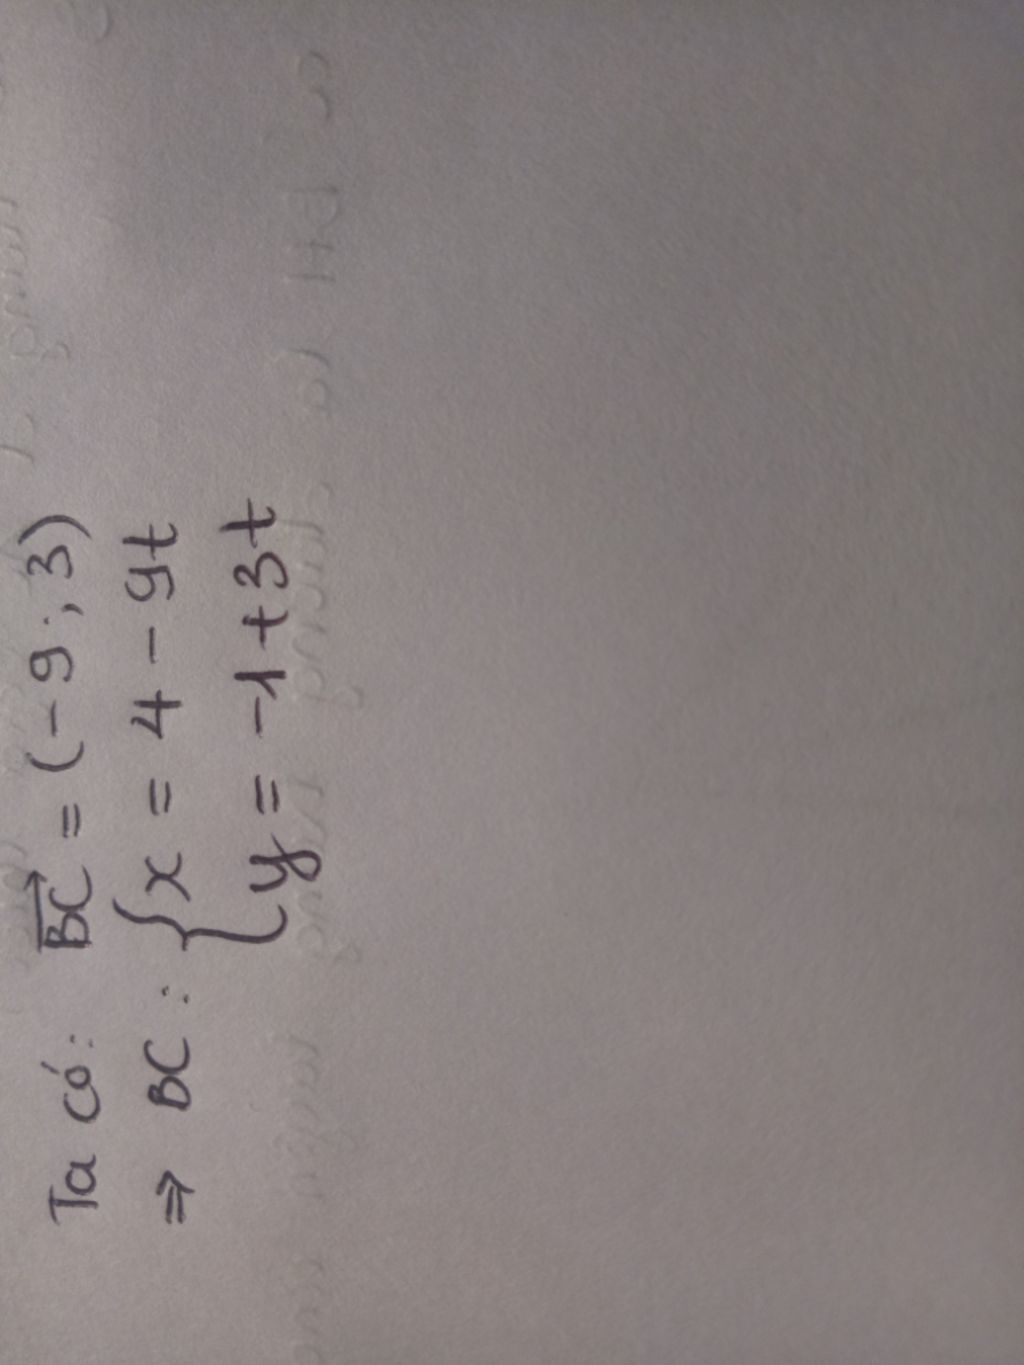 Ta có: \overrightarrow{BC} = (-9; 3)
⇒ BC: { x = 4 - 9t
y = -1 + 3t